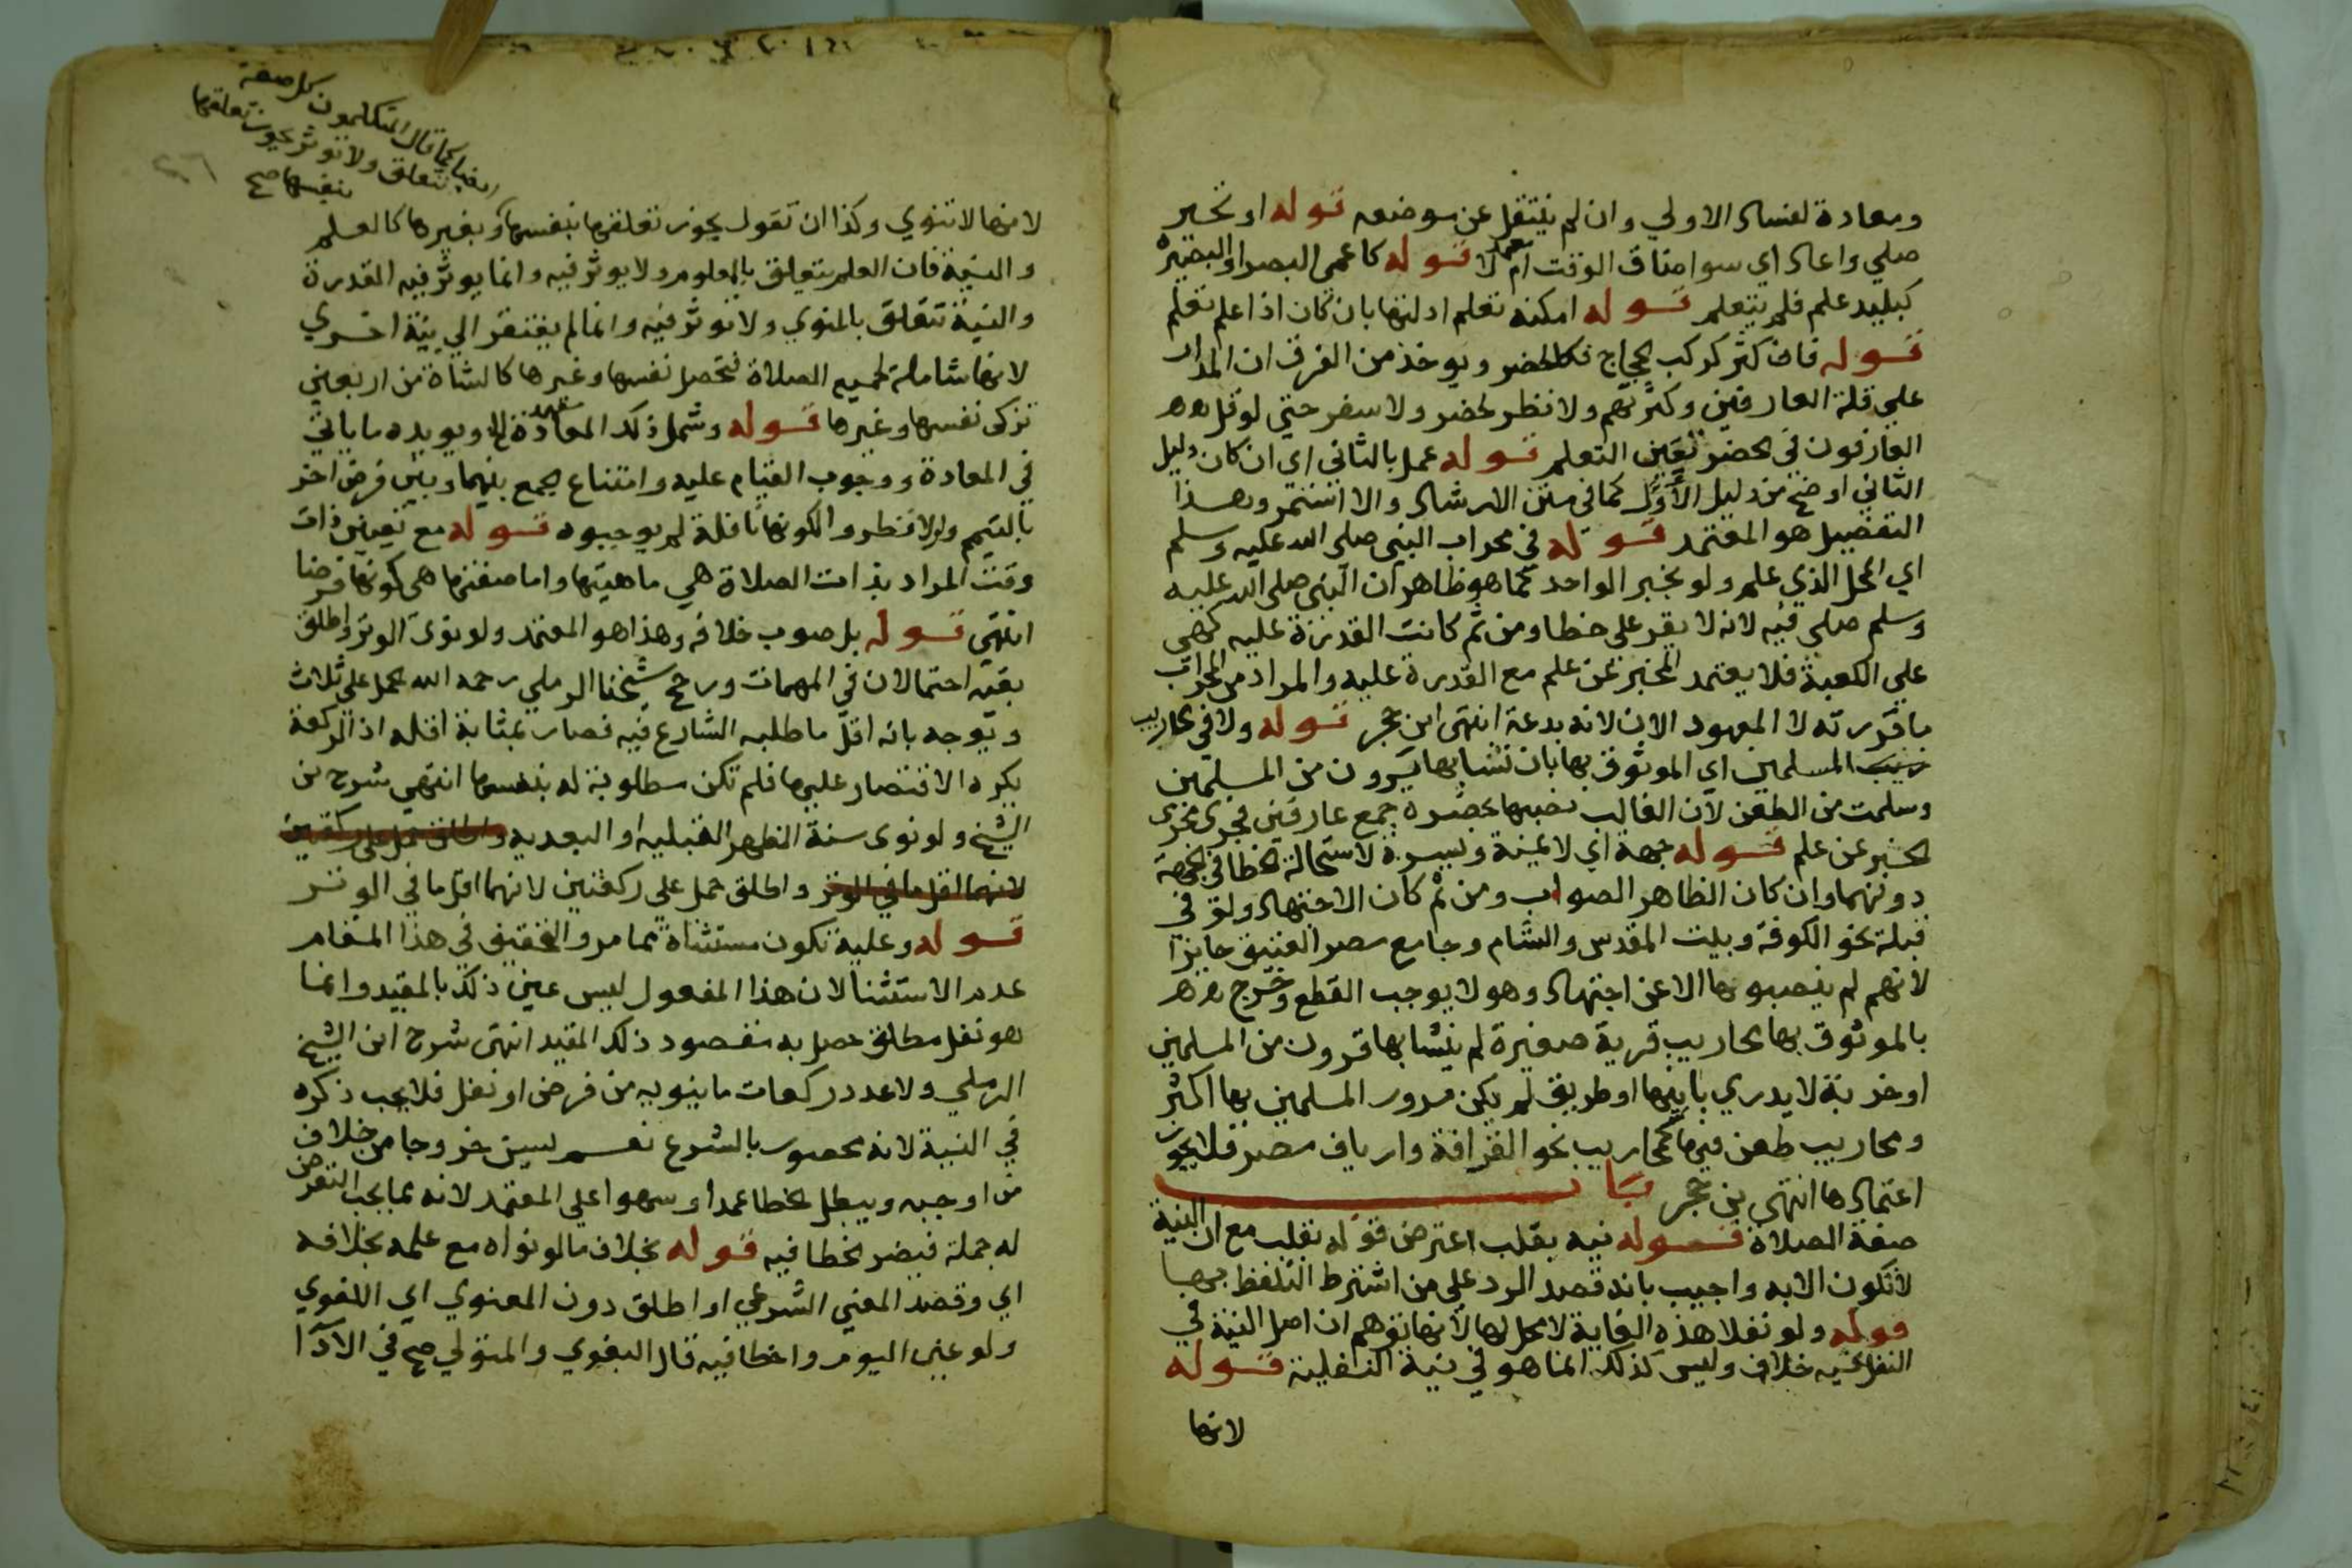 ومعادة لفساد الاولي وان لم ينتقل عن موضعه قوله او تحير
صلي واعاد اي سوا ضاق الوقت ام لا قوله كاعمى البصر او البصيرة
كبليد علم فلم يتعلم قوله امكنه تعلم ادلتها بان كان اذا علم تعلم
قوله فان كثر كركب الحجاج فكالحضر ويوخذ من الفرق ان المدار
علي قلة العارفين وكثرتهم ولا نظر لحضر ولا سفر حتي لو قل
العارفون في الحضر تعين التعلم قوله عمل بالثاني اي ان كان دليل
الثاني اوضح من دليل الأول كما في متن الارشاد والا استمر وهذا
التفصيل هو المعتمد قوله في محراب النبي صلى الله عليه وسلم
اي المحل الذي علم ولو بخبر الواحد كما هو ظاهر ان النبي صلى الله عليه
وسلم صلي فيه لانه لا يقر على خطا ومن ثم كانت القدرة عليه كهي
علي الكعبة فلا يعتمد المخبر عن علم مع القدرة عليه والمراد من المحراب
ما قررته لا المعهود الان لانه بدعة انتهى ابن حجر قوله ولا في محاريب
المسلمين اي الموثوق بها بان نشا بها قرون من المسلمين
وسلمت من الطعن لان الغالب نصبها بحضرة جمع عارفين فجرى مجرى
الخبر عن علم قوله جهة اي لا يمنة ويسرة لاستحالة الخطا في الجهة
دونهما وان كان الظاهر الصواب ومن ثم كان الاجتهاد ولو في
قبلة نحو الكوفة وبيت المقدس والشام وجامع مصر العتيق جايزا
لانهم لم ينصبوها الا عن اجتهاد وهو لا يوجب القطع وخرج
بالموثوق بها محاريب قرية صغيرة لم ينشا بها قرون من المسلمين
او خربة لا يدري بانيها او طريق لم يكن مرور المسلمين بها اكثر
ومحاريب طعن فيها كمحاريب نحو القرافة وارياف مصر فلا يجوز
اعتمادها انتهى بن حجر باب
صفة الصلاة قوله نيه بقلب اعترض قوله بقلب مع ان النية
لا تكون الا به واجيب بانه قصد الرد علي من اشترط التلفظ بها
قوله ولو نفلا هذه الغاية لا محل لها لانها توهم ان اصل النية في
النفل فيه خلاف وليس كذلك انما هو في نية النفلية قوله
لانها
كما قال المتكلمون كل صفة
تتعلق ولا توثر يجوز تعلقها
بنفسها صح
لانها لا تنوي وكذا ان تقول يجوز تعلقها بنفسها وبغيرها كالعلم
والنية فان العلم يتعلق بالمعلوم ولا يوثر فيه وانما يوثر فيه القدرة
والنية تتعلق بالمنوي ولا توثر فيه وانما لم يفتقر الي نية اخري
لانها شاملة لجميع الصلاة فتحصل نفسها وغيرها كالشاة من اربعين
تزكى نفسها وغيرها قوله وشمل ذلك المعادة ويويده ما ياتي
في المعادة ووجوب القيام عليه وامتناع الجمع بينهما وبين فرض اخر
بالتيمم ولو لا نظروا لكونها نافلة لم يوجبوه قوله مع تعيين ذات
وقت المراد بذات الصلاة هي ماهيتها واما صفتها هي كونها فرضا
انتهي قوله بل صوب خلافه وهذا هو المعتمد ولو نوى الوتر واطلق
بقيه احتمالان في المهمات ورجح شيخنا الرملي رحمه الله يحمل علي ثلاث
ويوجه بانه اقل ما طلبه الشارع فيه فصار بمثابة اقله اذ الركعة
يكره الاقتصار عليها فلم تكن مطلوبة له بنفسها انتهي شرح بن
الشيخ ولو نوى سنة الظهر القبليه او البعديه واطلق حمل على ركعتين
لانهما اقل ما في الوتر واطلق حمل على ركعتين لانهما اقل ما في الوتر
قوله وعليه تكون مستثناة مما مر والتحقيق في هذا المقام
عدم الاستثنا لان هذا المفعول ليس عين ذلك بالمقيد وانما
هو نفل مطلق حصل به مقصود ذلك المقيد انتهى شرح ابن الشيخ
الرملي ولا عدد ركعات ما ينويه من فرض او نفل فلا يجب ذكره
في النية لانه محصور بالشرع نعم ليسن خروجا من خلاف
من اوجبه ويبطل الخطا عمدا او سهوا علي المعتمد لانه مما يجب التعرض
له جملة فيضر الخطا فيه قوله بخلاف ما لو نواه مع علمه بخلافه
اي وقصد المعني الشرعي او اطلق دون المعنوي اي اللغوي
ولو عين اليوم واخطا فيه قال البغوي والمتولي صح في الادآ